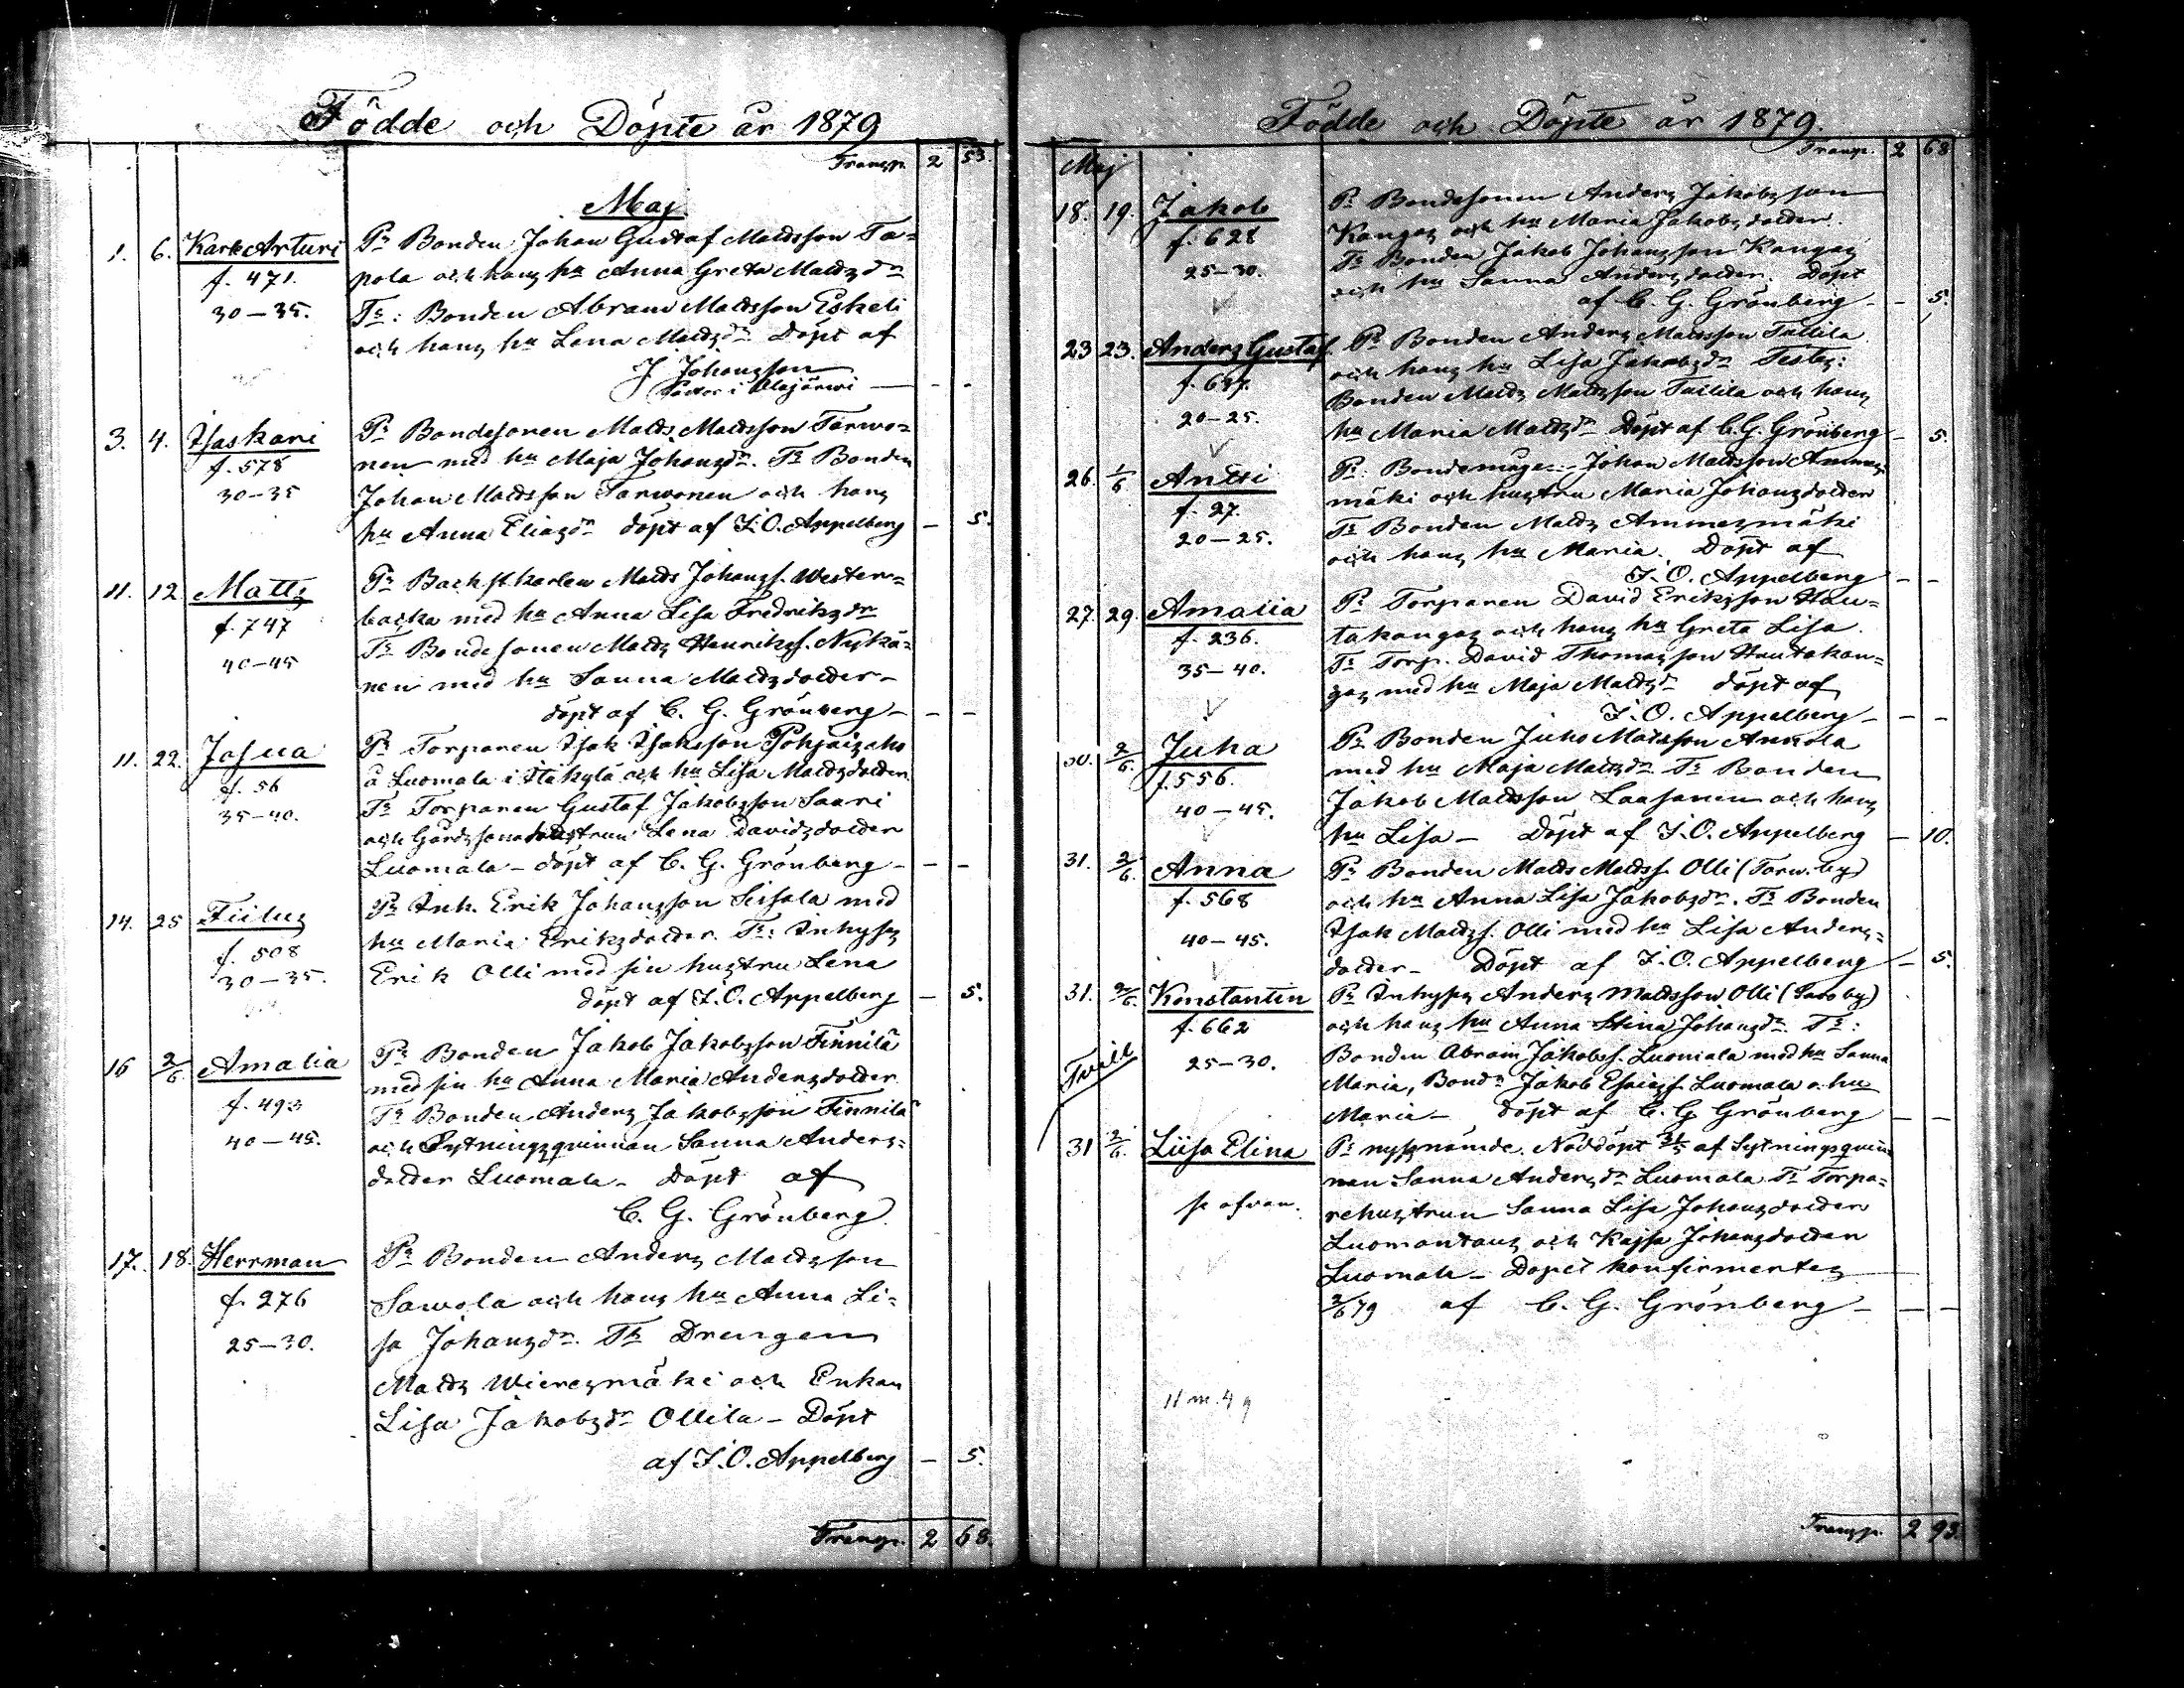 Födde och Döpte år 1879
Transp. 2 53
Maj
1. 6. Karle Arturi Pr Bonden Johan Gustaf Mattsson Ta=
f. 471. pola och hans hu Anna Greta Mattsdr
30–35. Tr: Bonden Abram Mattsson Eskeli
och hans hu Lena Mattsdr Döpt af
J Johansson
Pastor i Alajärwi – – –
3. 4. Isaskari Pr Bondesonen Matts Mattsson Tarwo=
f. 578 nen med hu Maja Johansdr. Tr Bonden
30–35 Johan Mattsson Tarwonen och hans
hu Anna Eliasdr döpt af J. O. Appelberg – 5.
11. 12 Matts Pr Backst.karlen Matts Johanss. Wester=
f. 747 backa med hu Anna Lisa Fredriksdr
40–45 Tr Bondesonen Matts Henrikss. Nykä=
nen med hu Sanna Mattsdotter –
döpt af C. G. Grönberg – – –
11. 22. Josua Pr Torparen Isak Isaksson Pohjaisaho
f. 56 å Luomala i Itäkylä och hu Lisa Mattsdotter
35–40. Tr Torparen Gustaf Jakobsson Saari
och Gårdssonahustrun Lena Davidsdotter
Luomala – döpt af C. G. Grönberg – – –
14. 25 Fiilus Pr Inh. Erik Johansson Sissala med
f. 508 hu Maria Eriksdotter. Tr: Inhyses
30–35. Erik Olli med sin hustru Lena
döpt af J. O. Appelberg – 5.
16 2/6. Amalia Pr Bonden Jakob Jakobsson Finnilä
f. 493 med sin hu Anna Maria Andersdotter
40–45. Tr Bonden Anders Jakobsson Finnilä
och Sytningsqvinnan Sanna Anders=
dotter Luomala – Döpt af
C. G. Grönberg
17. 18. Herrman Pr Bonden Anders Mattsson
f. 276 Sawola och hans hu Anna Li=
25–30. sa Johansdr. Tr Drengen
Matts Wieresmäki och Enkan
Lisa Jakobsdr Ollila – Döpt
af J. O. Appelberg – 5.
Transp. 2 68.
Födde och Döpte år 1879.
Maj Transp. 2 68
18. 19. Jakob Pr Bondesonen Anders Jakobsson
f. 628 Kangas och hu Maria Jakobsdotter.
25–30. Tr Bonden Jakob Johansson Kangas
och hu Sanna Andersdotter. Döpt
af C. G. Grönberg – – 5.
23 23. Anders Gustaf. Pr Bonden Anders Mattsson Tallila
och hans hu Lisa Jakobsdr Testes:
20–25. Bonden Matts Mattsson Tallila och hans
hu Maria Mattsdr Döpt af C. G. Grönberg – 5.
26. 1/6 Antti Pr: Bondemågen Johan Mattsson Ammes=
f. 27. mäki och hustru Maria Johansdotter
20–25. Tr Bonden Matts Ammesmäki
och hans hu Maria. Döpt af
J. O. Appelberg – –
27. 29. Amalia Pr Torparen David Eriksson Hau=
f. 236. takangas och hans hu Greta Lisa.
35–40. Tr Torp. David Thomasson Hautakan=
gas med hu Maja Mattsdr döpt af
J. O. Appelberg – – –
30. 2/6. Juha Pr Bonden Juho Mattsson Annola
f. 556. med hu Maja Mattsdr Tr Bonden
40–45. Jakob Mattsson Laasanen och hans
hu Lisa – Döpt af J. O. Appelberg – 10.
31. 2/6. Anna Pr Bonden Matts Mattss. Olli (Tarw. by)
f. 568 och hu Anna Lisa Jakobsdr. Tr Bonden
40–45. Isak Mattss. Olli med hu Lisa Anders=
dotter – Döpt af J. O. Appelberg – 5.
31. 2/6. Konstantin Pr Inhyses Anders Mattsson Olli
f. 662 och hans hu Anna Stina Johansdr. Tr:
Tvill 25–30. Bonden Abram Jakobss. Luomala med hu Sanna
Maria, Bondn Jakob Esaiass. Luomala o. hu
Maria – döpt af C. G. Grönberg – –
31 2/6. Liisa Elina Pr nyssnämde. Nöddöpt 31/5 af Sytningsqvin
se ofvan. nan Sanna Andersdr Luomala Tr Torpa=
rehustrun Sanna Lisa Johansdotter
Luomantaus och Kajsa Johansdotter
Luomala – Dopet konfirmertes
2/6 79 af C. G. Grönberg – – –
Transp. 2 93.